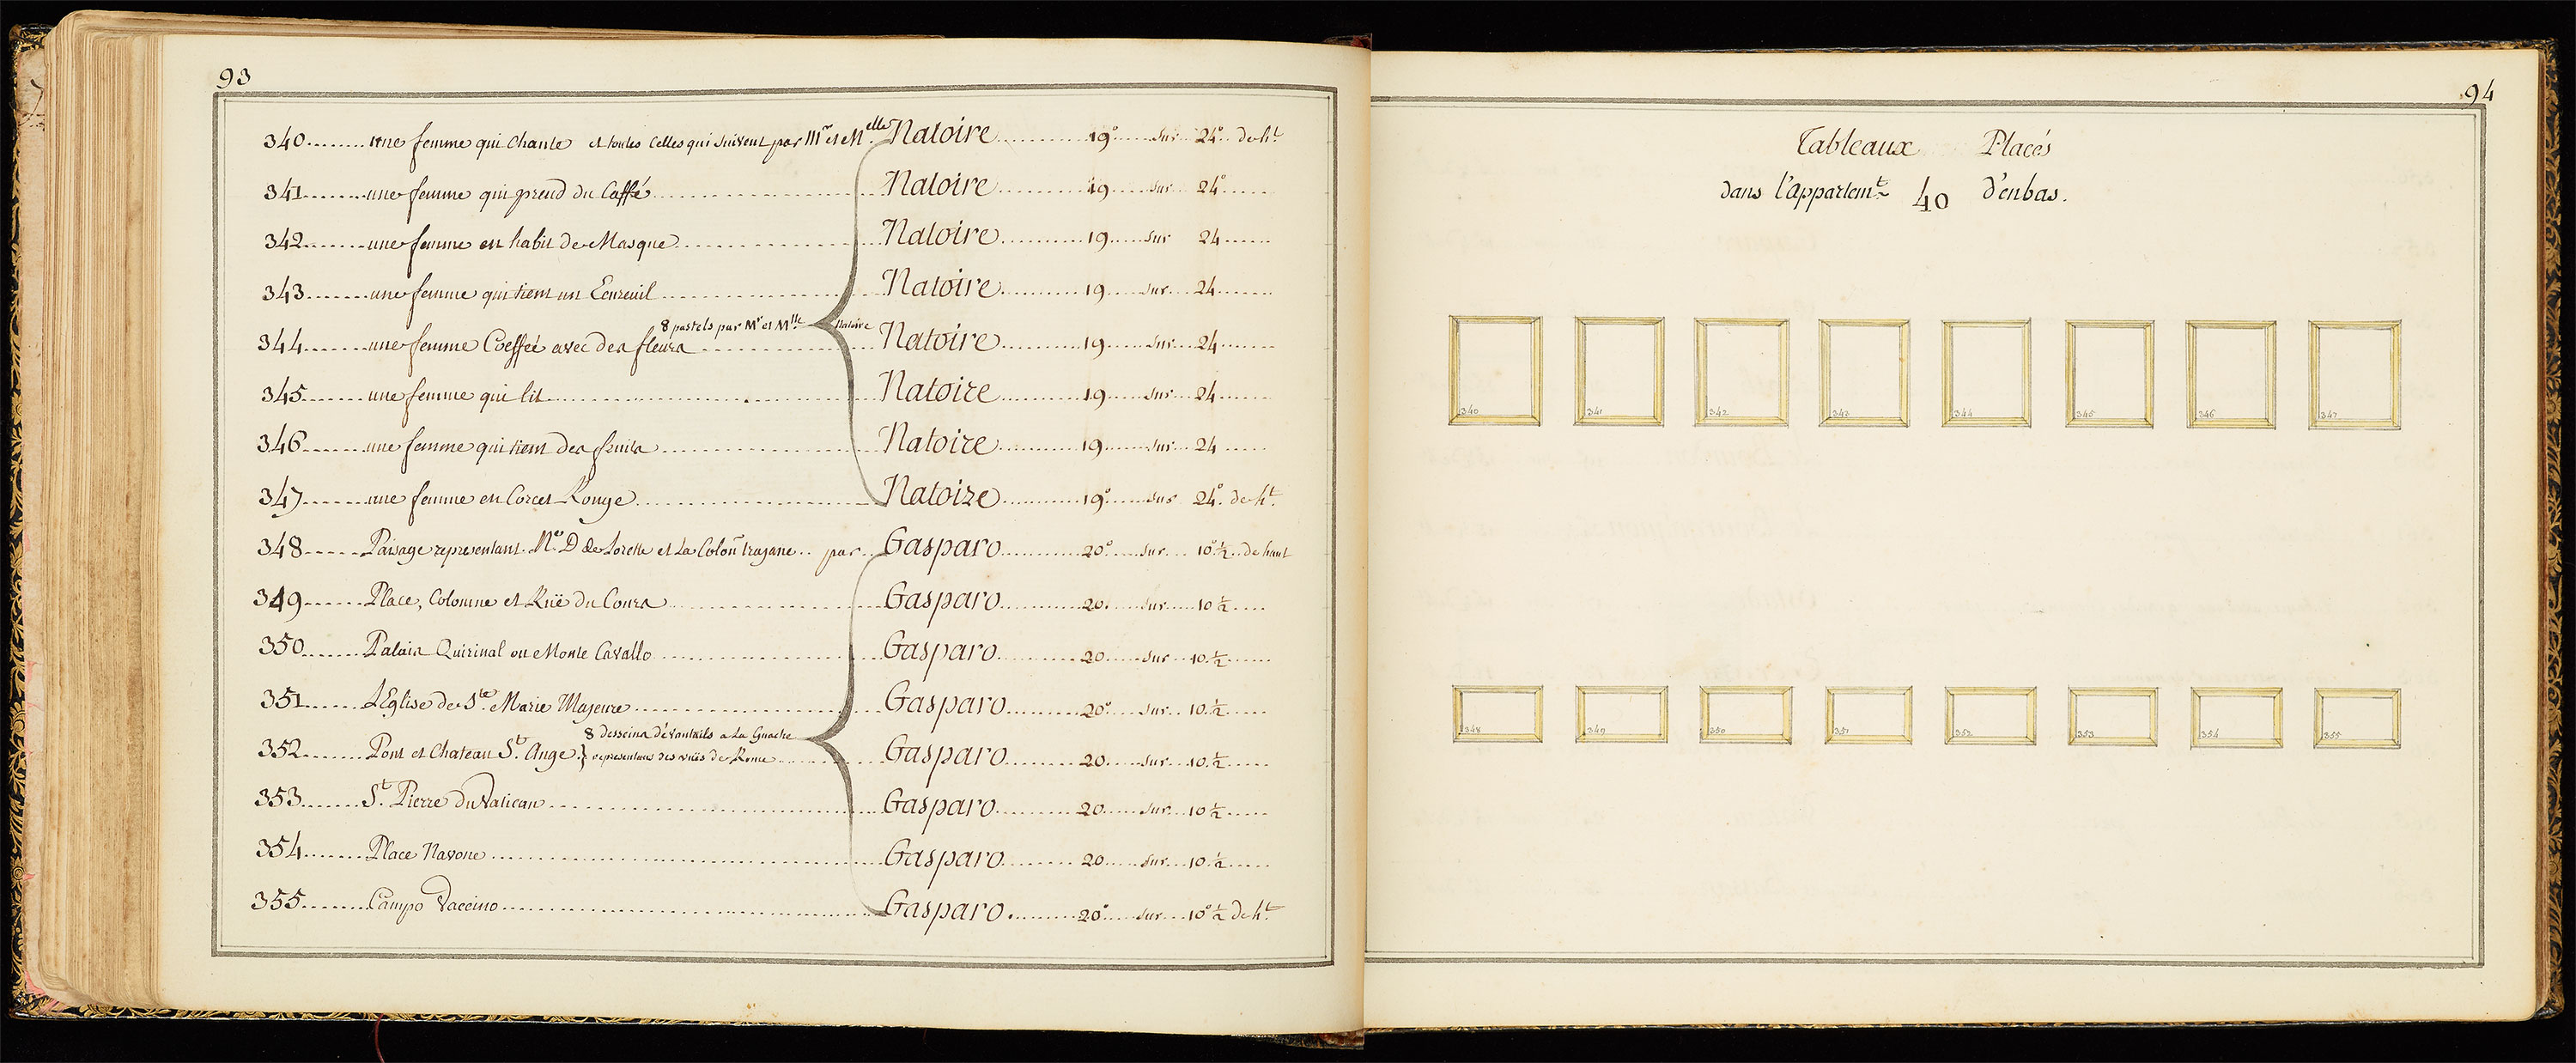 93
340........une femme qui Chante et toutes Celles qui suivent par Mr et Melle Natoire............19°......sur...24°..de ht
341........une femme qui prend du Caffé...........Natoire............19......sur...24°......
342........une femme en habit de Masque...........Natoire............19......sur 24......
343........une femme qui tient un Ecureuil...........Natoire............19......sur...24......
8 pastels par Mr et Mlle Natoire
344........une femme Coeffée avec des fleurs...........Natoire............19......sur...24......
345........une femme qui lit...........Natoire............19......sur...24......
346........une femme qui tient des fruits...........Natoire............19......sur...24......
347........une femme en Corcet Rouge...........Natoire............19°......sur 24°. de ht
348.....Paisage representant. Ne. D de Lorette et La Colone trajane.. par..Gasparo............20°......sur....10° ½..de haut
349......Place, Colonne et Ruë du Cours...........Gasparo............20.....sur....10 ½.....
350......Palais Quirinal ou Monte Cavallo...........Gasparo............20......sur...10.½......
351......L'Eglise de Ste Marie Majeure...........Gasparo............20°.....sur...10.½.....
8 desseins d'évantails a La Guache
352......Pont et Chateau St. Ange.} representans des vuës de Rome...........Gasparo............20......sur...10.½.....
353......St. Pierre du Vatican...........Gasparo............20......sur...10 ½.....
354......Place Navone...........Gasparo............20......sur...10.½.....
355......Campo Vaccino...........Gasparo............20°......sur...10° ½ de ht
94
Tableaux Placés
dans l'appartemt 40 d'enbas.
340 341 342 343 344 345 346 347
348 349 350 351 352 353 354 355